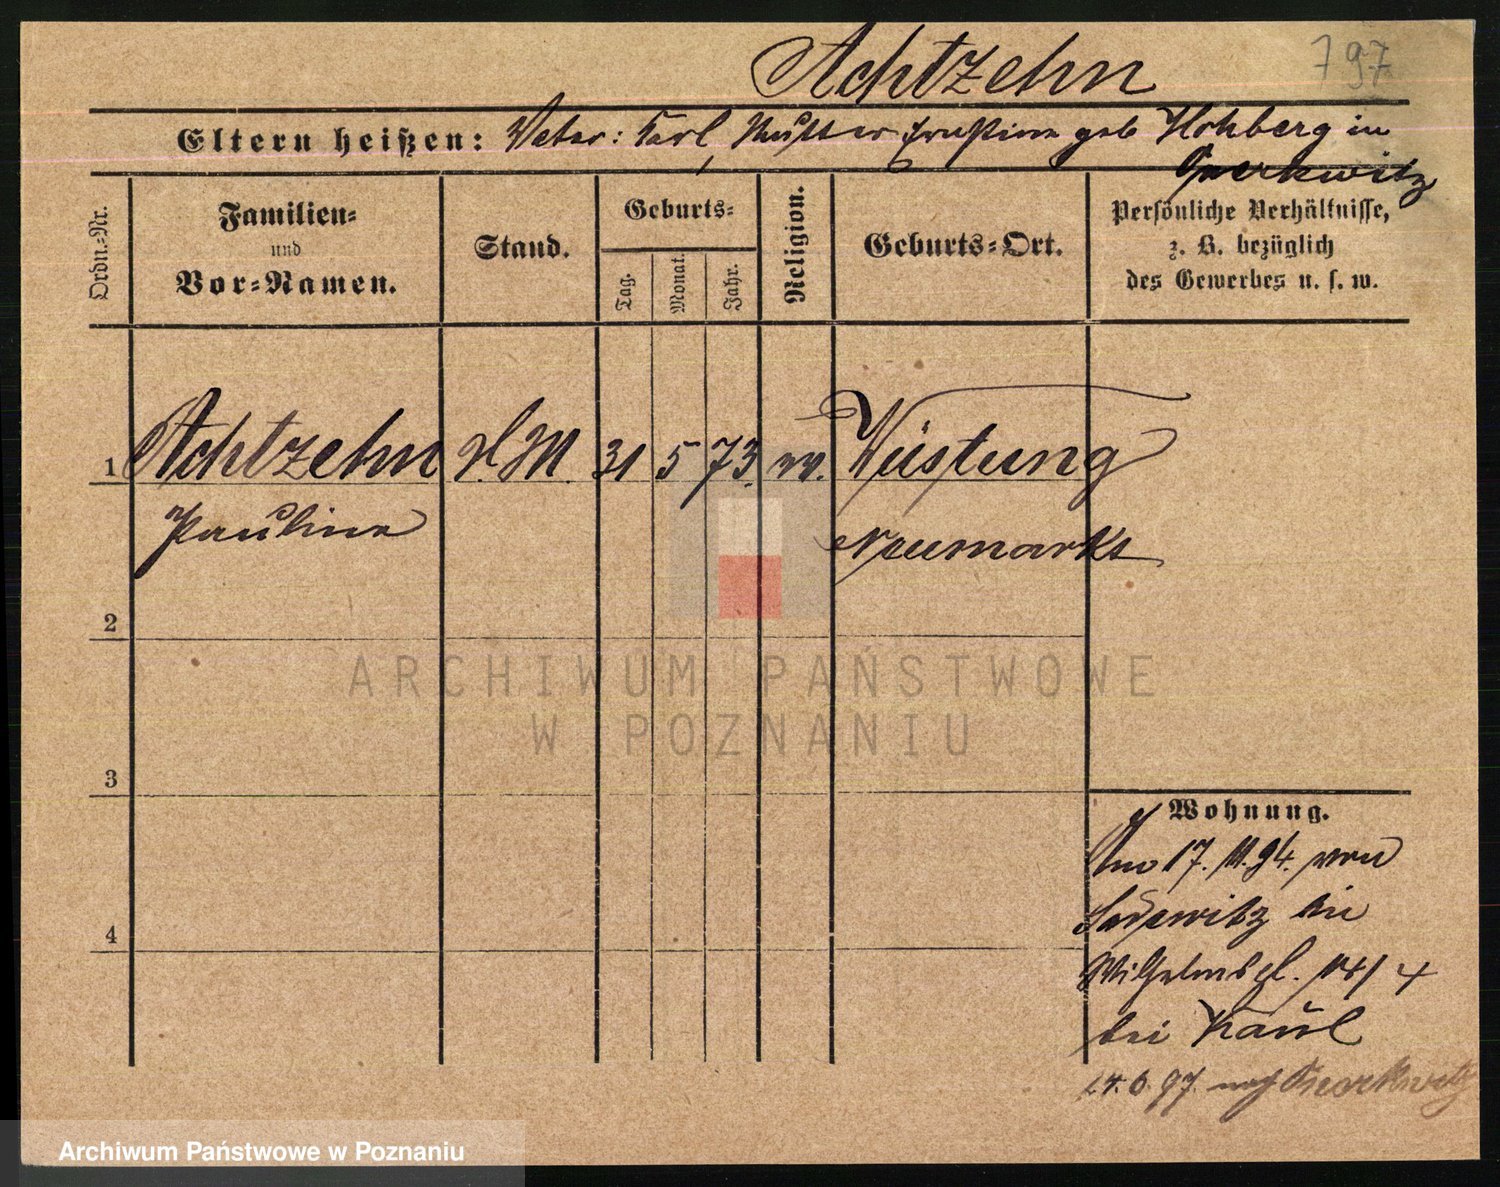 Achtzehn
797
Eltern heißen: Vater: Karl, Mutter Ernstine geb Hohberg in
Ordn.-Nr.
Familien-
und
Vor-Namen.
Stand.
Geburts-
Tag.
Monat.
Jahr.
Religion.
Geburts-Ort.
Persönliche Verhältnisse,
z. B. bezüglich
des Gewerbes u. s. w.
1 Achtzehn D.M. 31 5 73. ev. Wüstung
Pauline Neumarkt
2
3
4
ARCHIWUM PAŃSTWOWE
W POZNANIU
Wohnung.
Am 17. 11. 94. von
Sadewitz in
Wilhelmspl. 14/4
bei Kaul
24. 6. 97. nach
Archiwum Państwowe w Poznaniu